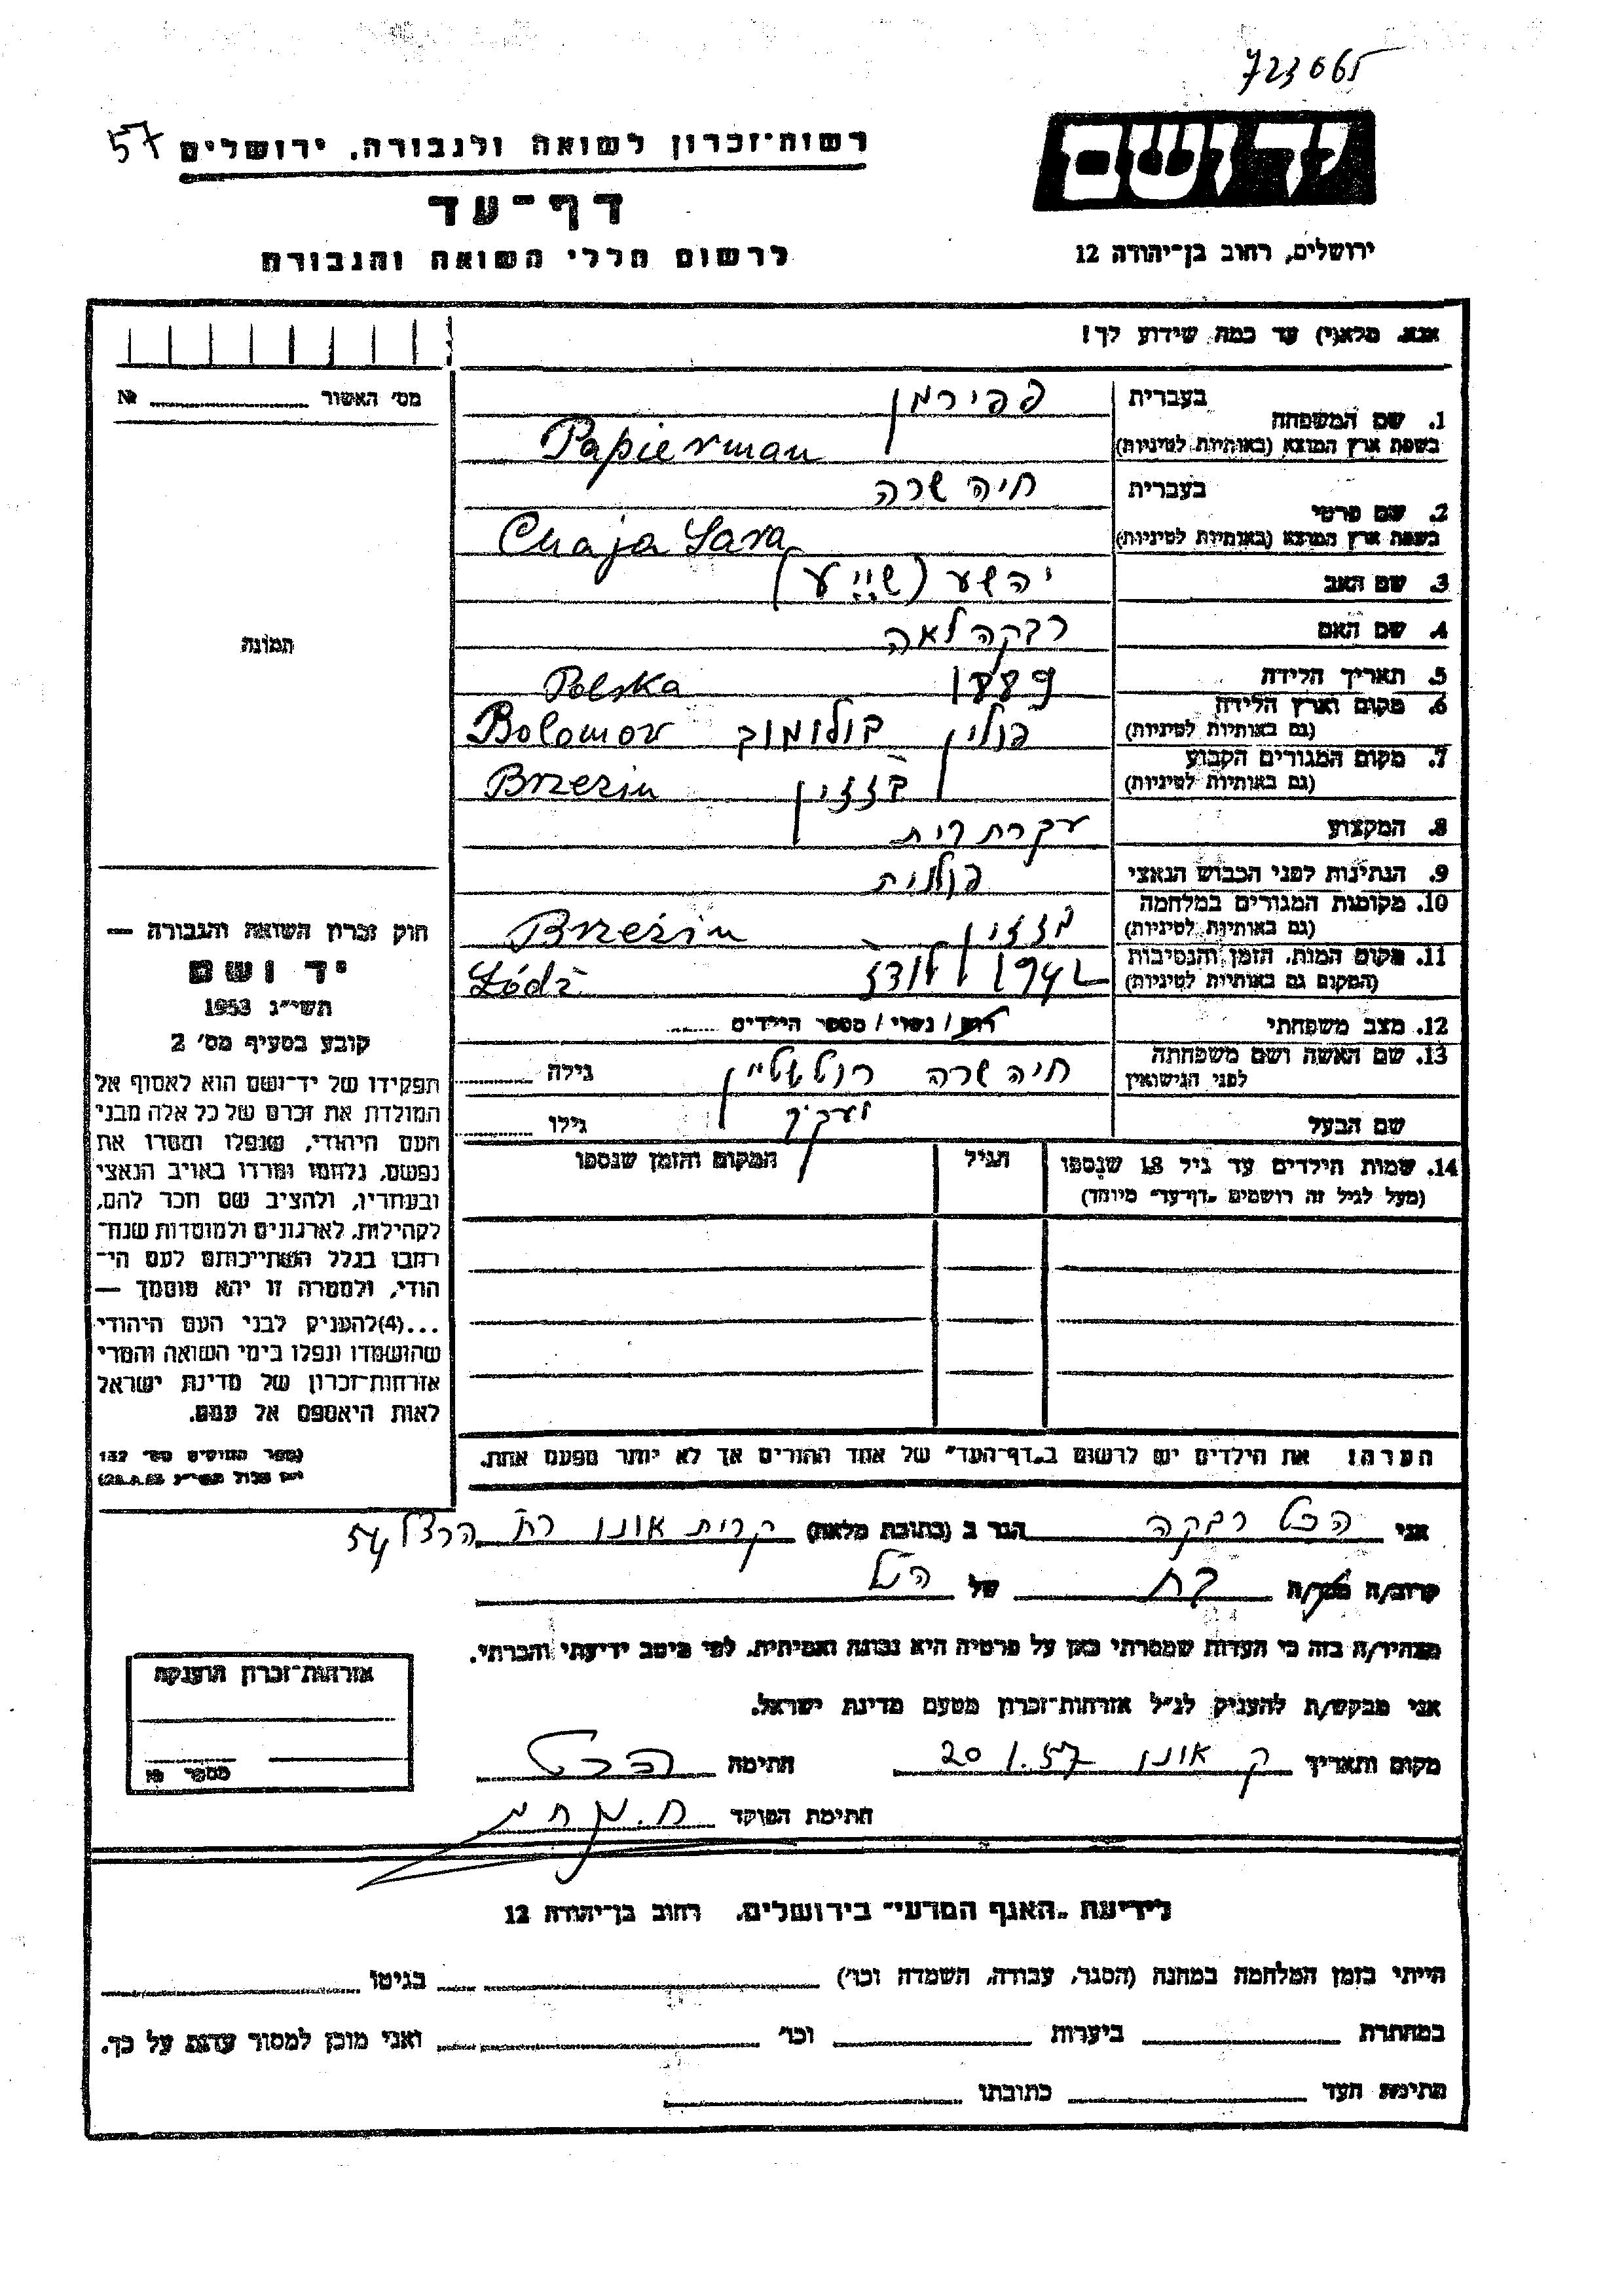 723065
57
רשות־זכרון לשואה ולגבורה. ירושלים
דף־עד
לרשום חללי השואה והגבורה
יד ושם
ירושלים, רחוב בן־יהודה 12
אנא. מלא(י) עד כמה שידוע לך!
מס' האשור № 
1. שם המשפחה
בעברית פפירמן
בשפת ארץ המוצא (באותיות לטיניות) Papierman
2. שם פרטי
בעברית חיה שרה
בשפת ארץ המוצא (באותיות לטיניות) Chaja Sara
3. שם האב יהשע (שייע)
4. שם האם רבקה לאה
5. תאריך הלידה 1889 Polska
6. מקום וארץ הלידה
(גם באותיות לטיניות) פולין בולומוב Bolomov
7. מקום המגורים הקבוע
(גם באותיות לטיניות) בזזין Brzezin
8. המקצוע עקרת בית
9. הנתינות לפני הכבוש הנאצי פולנית
10. מקומות המגורים במלחמה
(גם באותיות לטיניות) בזזין Brzezin
11. מקום המות, הזמן והנסיבות
(המקום גם באותיות לטיניות) 1942 לודז Łódź
12. מצב משפחתי רוק / נשוי / מספר הילדים
13. שם האשה ושם משפחתה
לפני הנישואין חיה שרה גילה
שם הבעל גילו
14. שמות הילדים עד גיל 18 שנספו
(מעל לגיל זה רושמים "דף־עד" מיוחד)
הגיל
המקום והזמן שנספו
תמונה
חוק זכרון השואה והגבורה —
יד ושם
תשי"ג 1953
קובע בסעיף מס' 2
תפקידו של יד־ושם הוא לאסוף אל
המולדת את זכרם של כל אלה מבני
העם היהודי, שנפלו ומסרו את
נפשם, נלחמו ומרדו באויב הנאצי
ובעוזריו, ולהציב שם וזכר להם,
לקהילות, לארגונים ולמוסדות שנח־
רבו בגלל השתייכותם לעם הי־
הודי, ולמטרה זו יהא מוסמך —
...(4)להעניק לבני העם היהודי
שהושמדו ונפלו בימי השואה והמרי
אזרחות־זכרון של מדינת ישראל
לאות היאספם אל עמם.
(ספר החוקים מס' 132
הערה! את הילדים יש לרשום ב"דף־העד" של אחד ההורים אך לא יותר מפעם אחת.
אני רבקה הגר ב (כתובת מלאה) קרית אונו רח הרצל 54
קרוב/ה מכר/ה בת של הנ"ל
מצהיר/ה בזה כי העדות שמסרתי כאן על פרטיה היא נכונה ואמיתית, לפי מיטב ידיעתי והכרתי.
אני מבקש/ת להעניק לנ"ל אזרחות־זכרון מטעם מדינת ישראל.
מקום ותאריך ק אונו 20.1.57 חתימה
חתימת הפוקד
אזרחות־זכרון הוענקה
מספר
לידיעת "האגף המדעי" בירושלים. רחוב בן־יהודה 12
הייתי בזמן המלחמה במחנה (הסגר, עבודה, השמדה וכו') בגיטו
במחתרת ביערות וכו' ואני מוכן למסור עדות על כך.
חתימת העד כתובתו